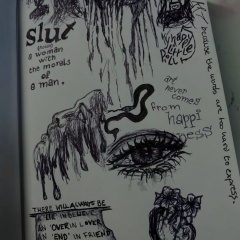 slut
(noun)
a woman
with the
morals
of
a man.
art
never
comes
from
happi
ness
because the words are too hard to express.
THERE WILL ALWAYS BE
A LIE IN BELIEVE,
AN OVER IN LOVER,
AN 'END' IN FRIEND